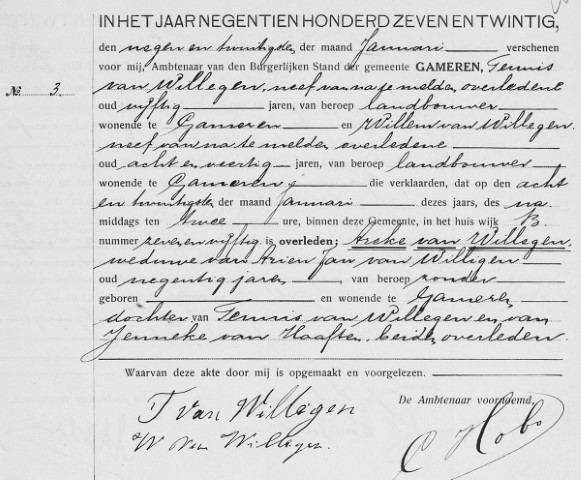 IN HET JAAR NEGENTIEN HONDERD ZEVEN EN TWINTIG,
den negen en twintigste der maand Januari verschenen
voor mij, Ambtenaar van den Burgerlijken Stand der gemeente GAMEREN, Teunis
№. 3.
van Willegen, neef van na te melden overledene
oud vijftig jaren, van beroep landbouwer
wonende te Gameren en Willem van Willegen,
neef van na te melden overledene
oud acht en veertig jaren, van beroep landbouwer
wonende te Gameren; die verklaarden, dat op den acht
en twintigste der maand Januari dezes jaars, des na
middags ten twee ure, binnen deze Gemeente, in het huis wijk B.
nummer zeven en vijftig is overleden; Areke van Willegen,
weduwe van Arien Jan van Willigen
oud negentig jaren, van beroep zonder
geboren en wonende te Gameren,
dochter van Teunis van Willegen en van
Jenneke van Haaften, beiden overleden.
Waarvan deze akte door mij is opgemaakt en voorgelezen.
De Ambtenaar voornoemd,
T van Willegen
W van Willigen.
C Hobo